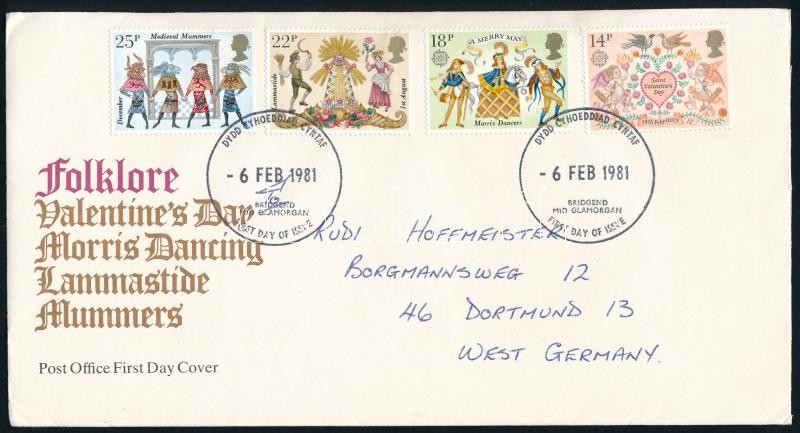 25P
Medieval Mummers
December
22P
Lammastide
1st August
18P
A MERRY MAY
Morris Dancers
14P
Saint
Valentine's
Day
14th February
DYDD CYHOEDDIAD CYNTAF
- 6 FEB 1981
BRIDGEND
MID GLAMORGAN
FIRST DAY OF ISSUE
DYDD CYHOEDDIAD CYNTAF
- 6 FEB 1981
BRIDGEND
MID GLAMORGAN
FIRST DAY OF ISSUE
Folklore
Valentine's Day
Morris Dancing
Lammastide
Mummers
Post Office First Day Cover
RUDI HOFFMEISTER
BORGMANNSWEG 12
46 DORTMUND 13
WEST GERMANY.